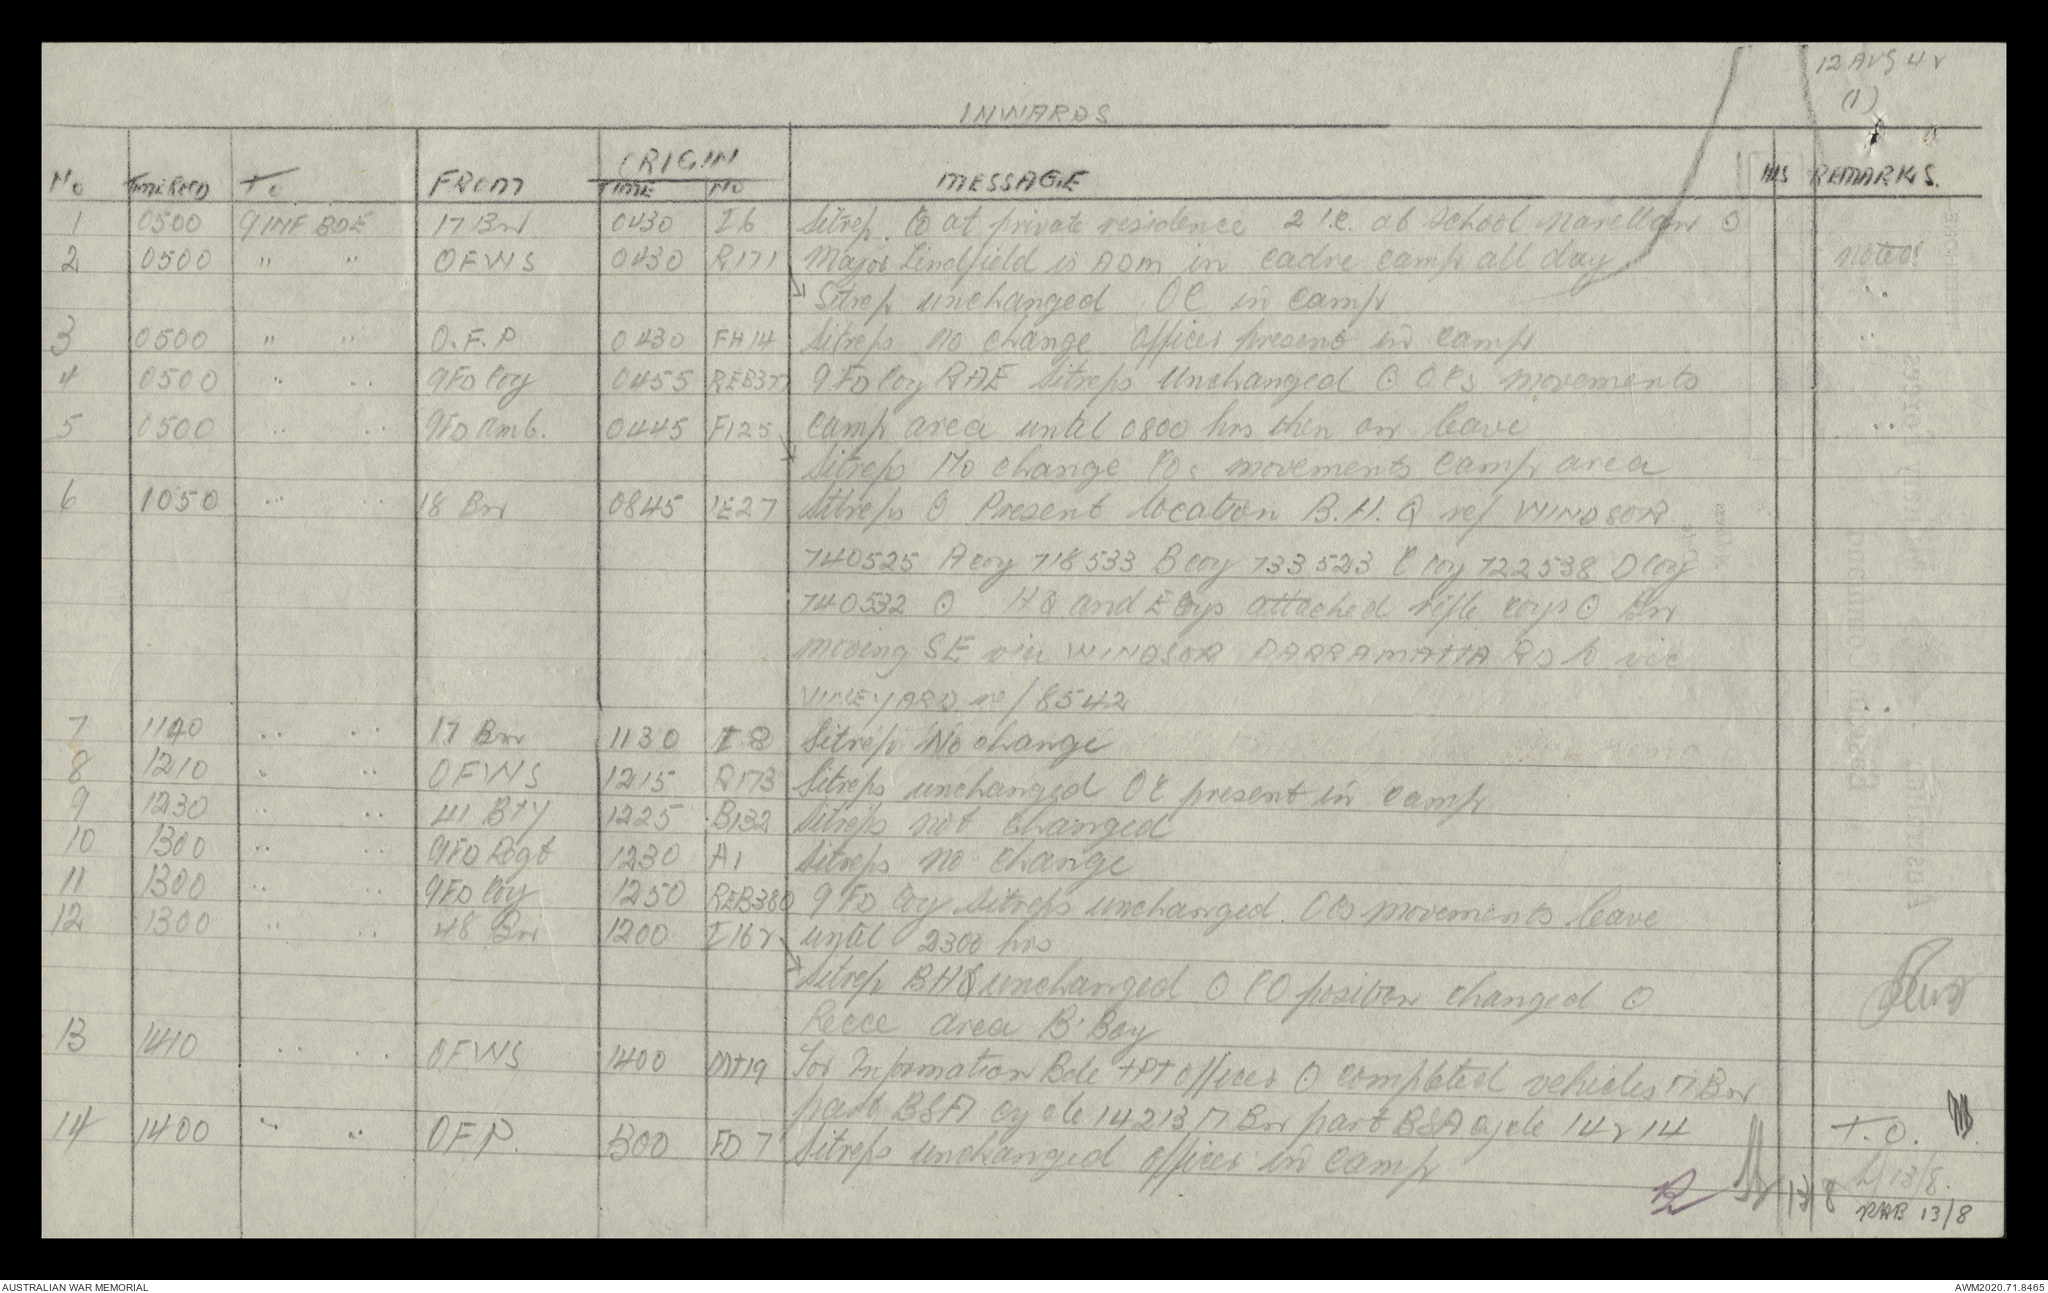 12 AUG 42
(1)
INWARDS
No TIME RECD To FROM ORIGIN TIME NO MESSAGE HLS REMARKS.
1 0500 9 INF BDE 17 Bn 0430 I6 Sitrep. CO at private residence 2 I.C. at School Narellan ⊙
2 0500 " " OFWS 0430 R171 Major Lindfield is ADM in cadre camp all day Noted!
Sitrep unchanged OC in camp " .
3 0500 " " O.F.P 0430 FH14 Sitreps no change officer present in camp " .
4 0500 " " 9 FD Coy 0455 REB377 9 FD Coy RAE Sitreps Unchanged ⊙ OCs movements
5 0500 " " 9 FD Amb. 0445 F125 camp area until 0800 hrs then on leave " .
Sitreps No change COs movements camp area
6 1050 " " 18 Bn 0845 IE27 Sitreps ⊙ Present location B.H.Q ref WINDSOR
740525 A coy 718533 B coy 733523 C coy 722538 D Coy
740532 ⊙ HQ and E Coys attached rifle coys ⊙ Bn
moving SE via WINDSOR PARRAMATTA RD to vic
VINEYARD ref 8542 " .
7 1140 " " 17 Bn 1130 I8 Sitrep No change
8 1210 " " OFWS 1215 R173 Sitreps unchanged OC present in camp
9 1230 " " 41 BTY 1225 B132 Sitreps not changed
10 1300 " " 9 FD Regt 1230 A1 Sitreps no change
11 1300 " " 9 FD Coy 1250 REB380 9 FD Coy Sitreps unchanged. OCs movements leave
12 1300 " " 48 Bn 1200 I162 until 2300 hrs
Sitrep BHQ unchanged ⊙ CO position changed ⊙
Recce area B' Bay
13 1410 " " OFWS 1400 MT19 For Information Bde TPT officer ⊙ completed vehicles 17 Bn
part BSA cycle 14213 17 Bn part BSA cycle 14214 T.O.
14 1400 " " OFP. 1300 FD7 Sitreps unchanged officer in camp
13/8.
13/8 RAB 13/8
AUSTRALIAN WAR MEMORIAL AWM2020.71.8465